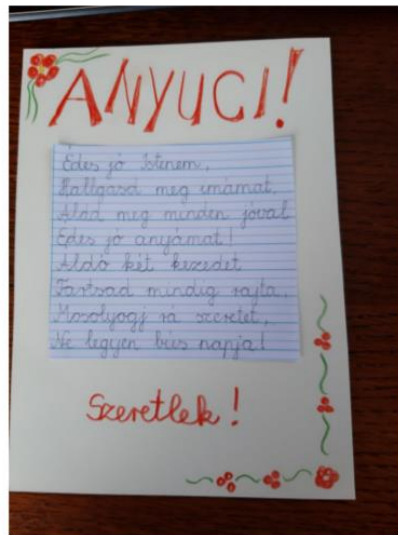 ANYUCI!
Édes jó Istenem,
Hallgasd meg imámat,
Áldd meg minden jóval
Édes jó anyámat!
Áldó két kezedet
Tartsad mindig rajta,
Mosolyogj rá szeretet,
Ne legyen bús napja!
Szeretlek!